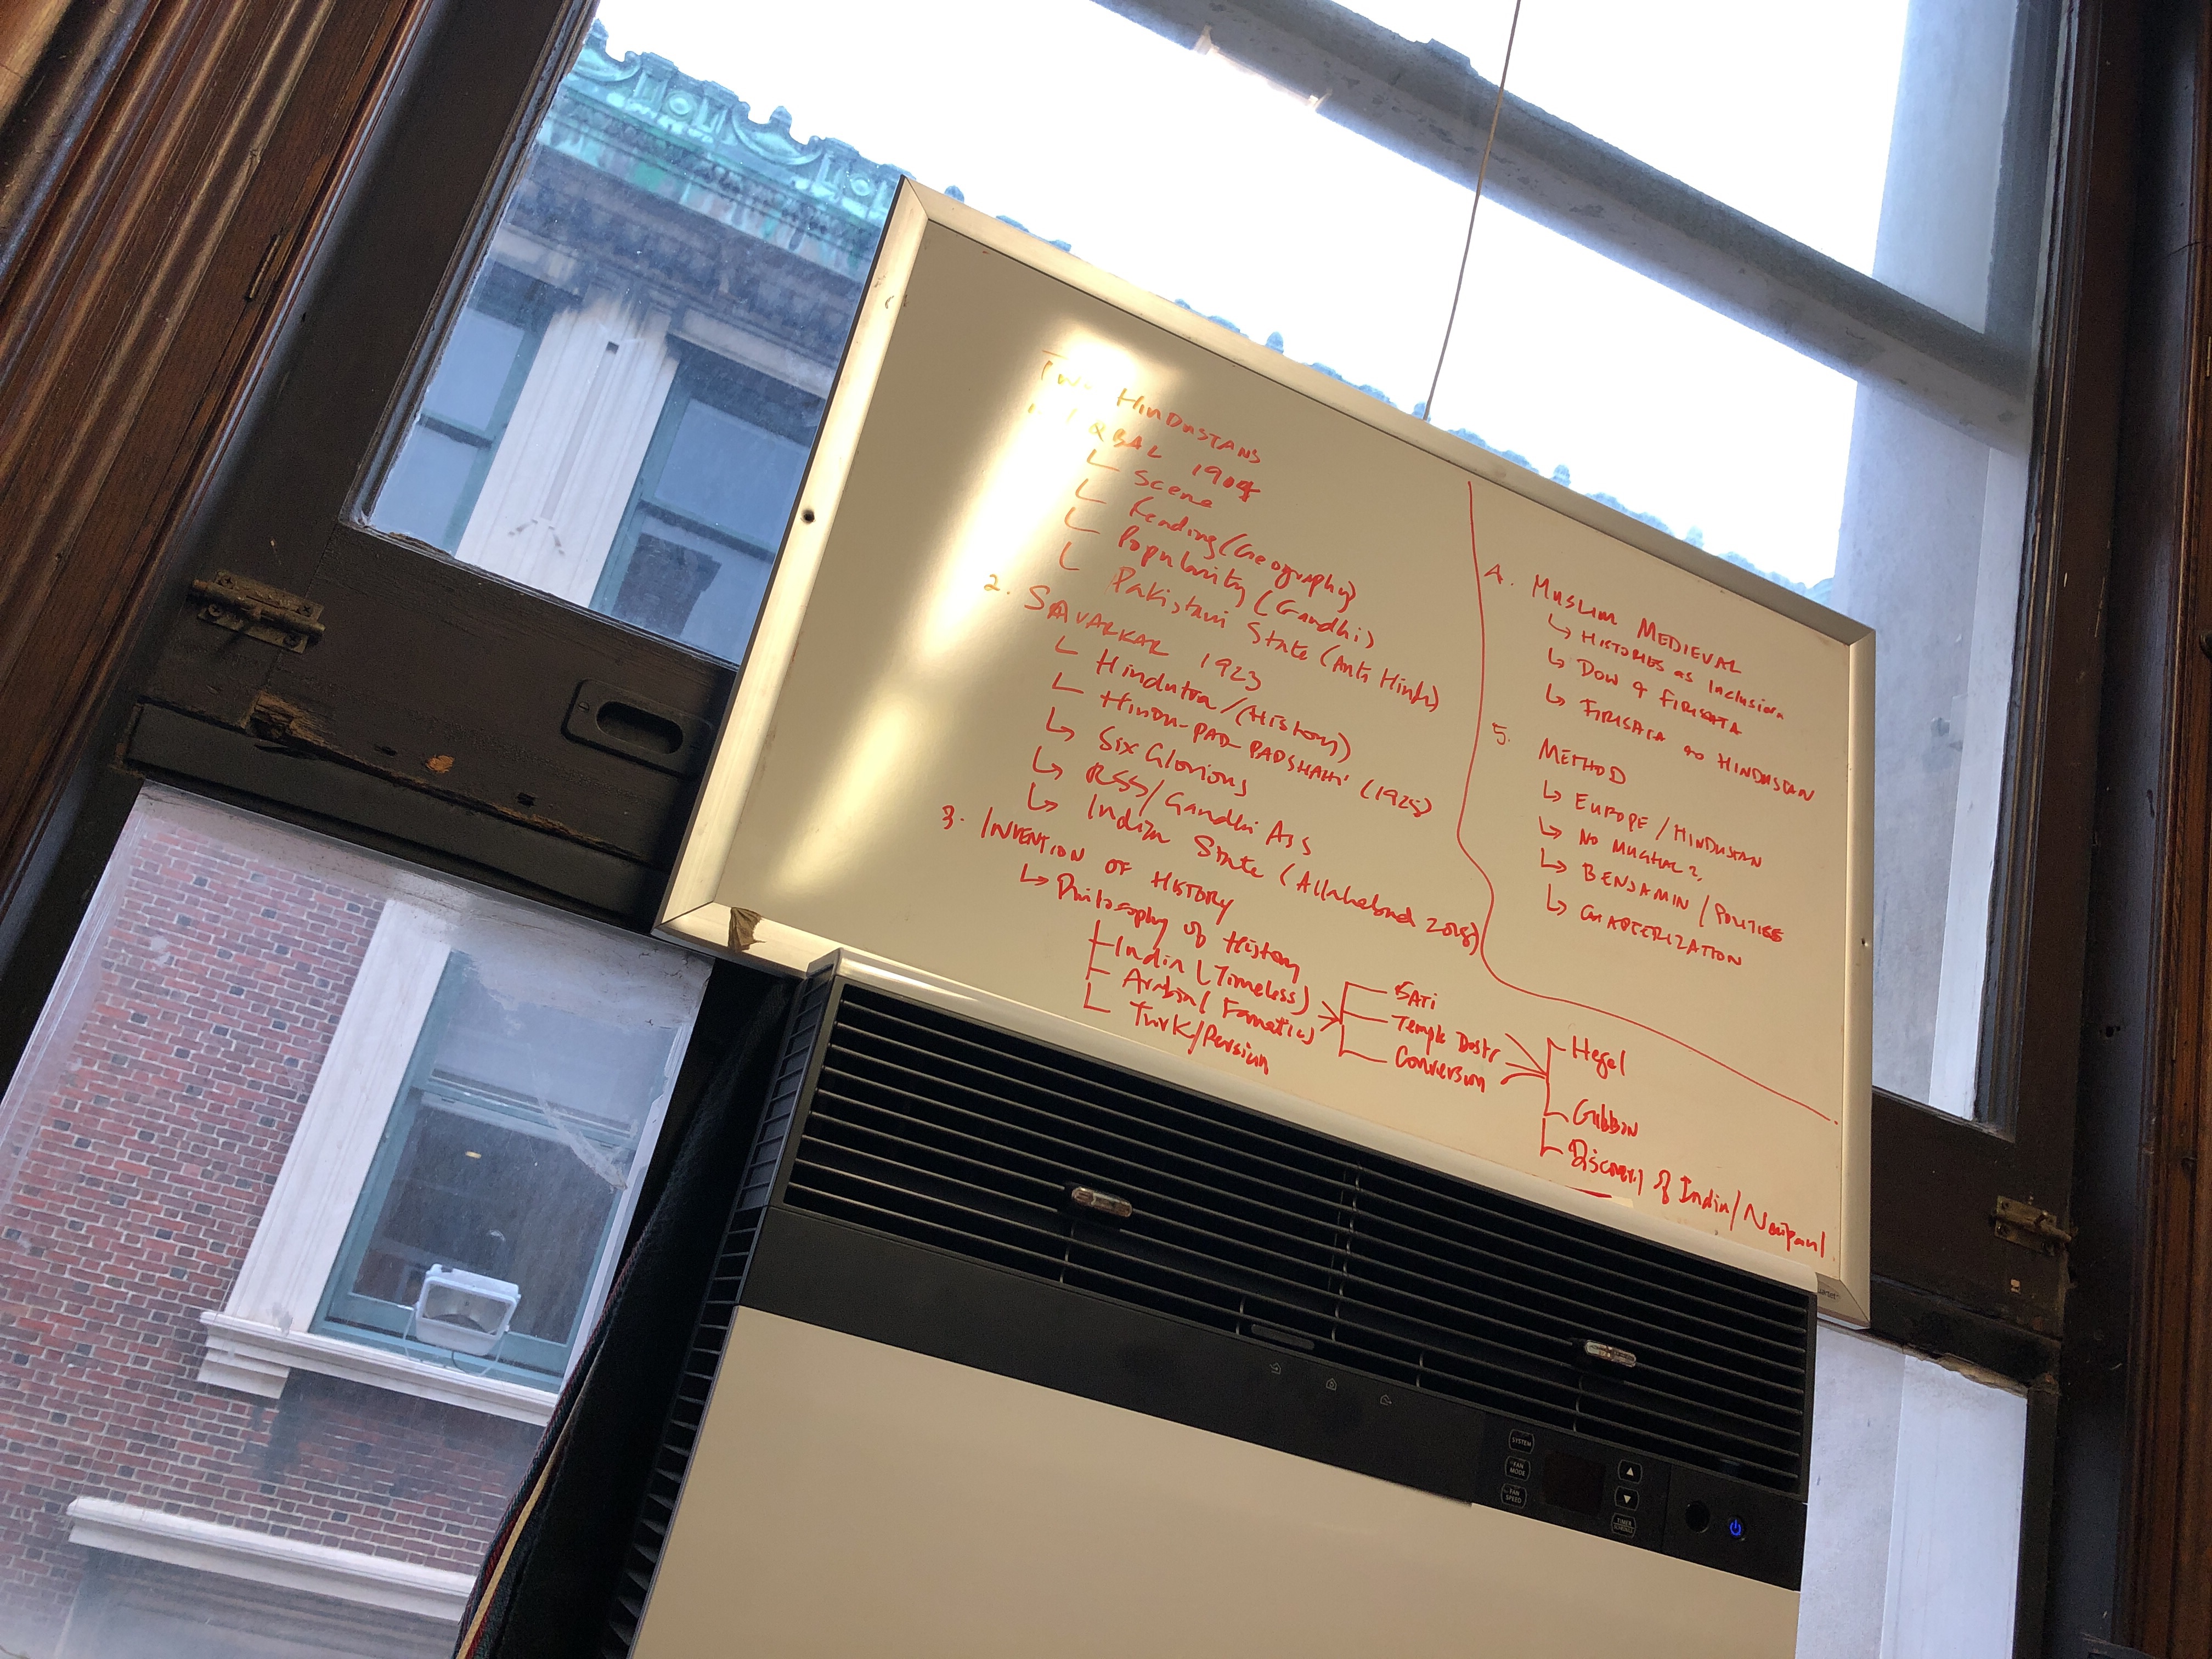 Two HINDUSTANS
1. IQBAL 1904
Scene
Reading (Geography)
Popularity (Gandhi)
Pakistani State (Anti Hindu)
2. SAVARKAR 1923
Hindutva/(History)
HINDU-PAD-PADSHAHI (1925)
Six Glorious
RSS/Gandhi Ass
Indian State (Allahabad 2018)
3. INVENTION OF HISTORY
Philosophy of History
India (Timeless)
Arabia (Fanatics)
Turk/Persian
SATI
Temple Destr
Conversion
Hegel
Gibbon
Discovery of India/
4. MUSLIM MEDIEVAL
HISTORIES as Inclusion
DOW & FIRISHTA
FIRISHTA to HINDUSTAN
5. METHOD
EUROPE/HINDUSTAN
NO MUGHAL?
BENJAMIN/POLITICS
CHAPTERIZATION
SYSTEM
FAN MODE
FAN SPEED
TIMER